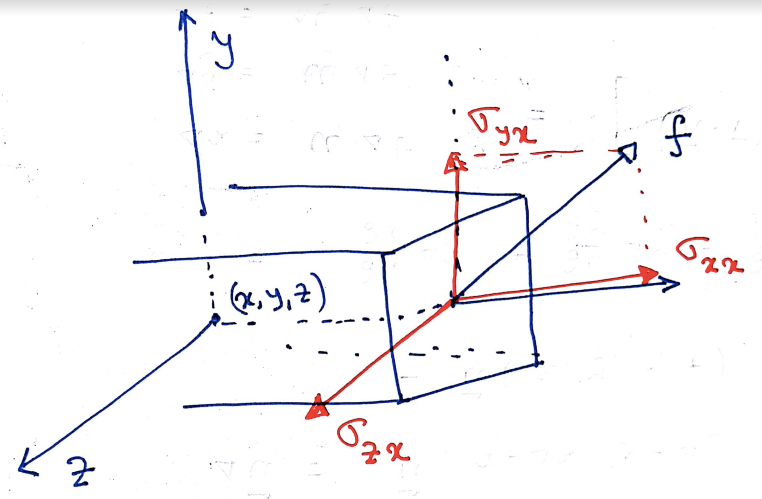 y
σyx
f
σxx
(x, y, z)
σzx
z